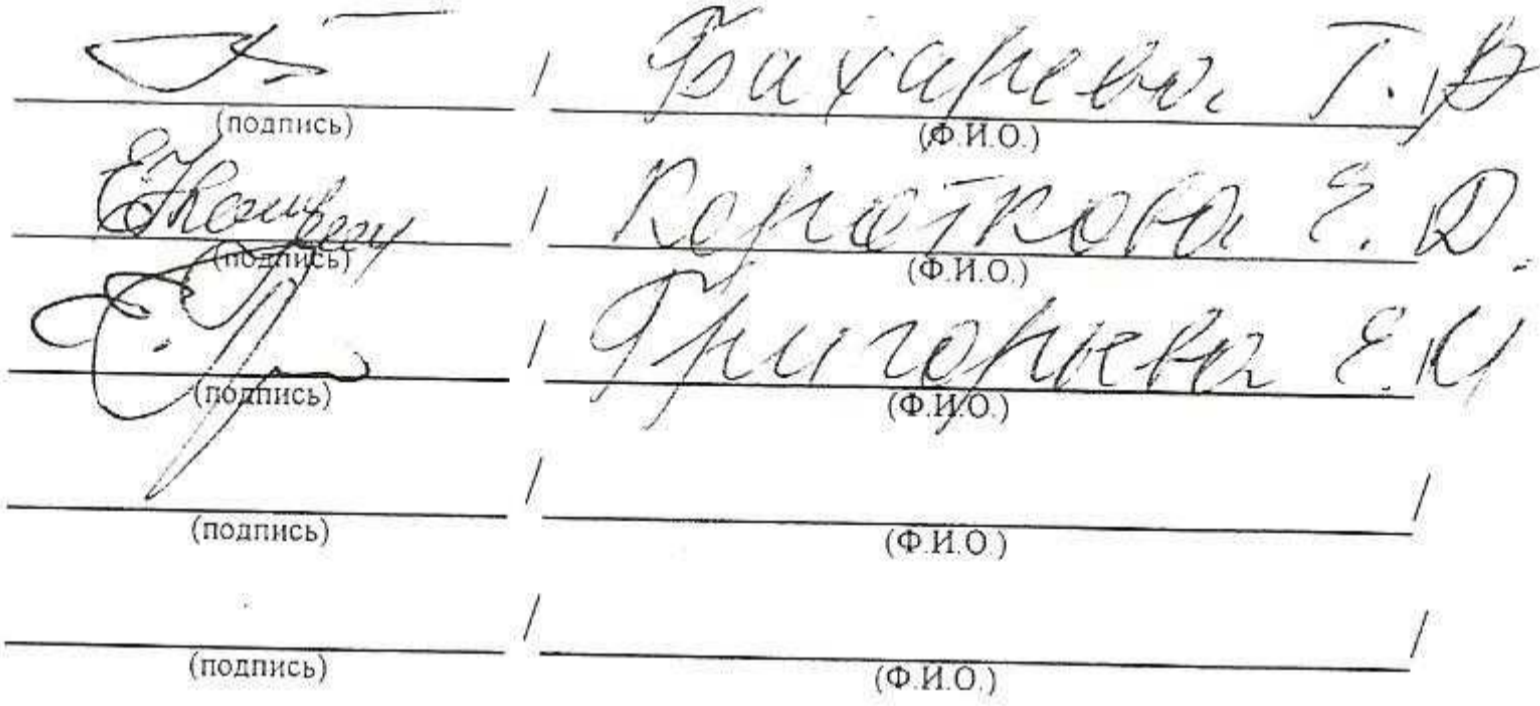 / Бахарева Т. В /
(подпись) (Ф.И.О.)
/ Короткова Е. Д.
(подпись) (Ф.И.О.)
/ Григорьева Е. И /
(подпись) (Ф.И.О.)
/ /
(подпись) (Ф.И.О.)
/ /
(подпись) (Ф.И.О.)